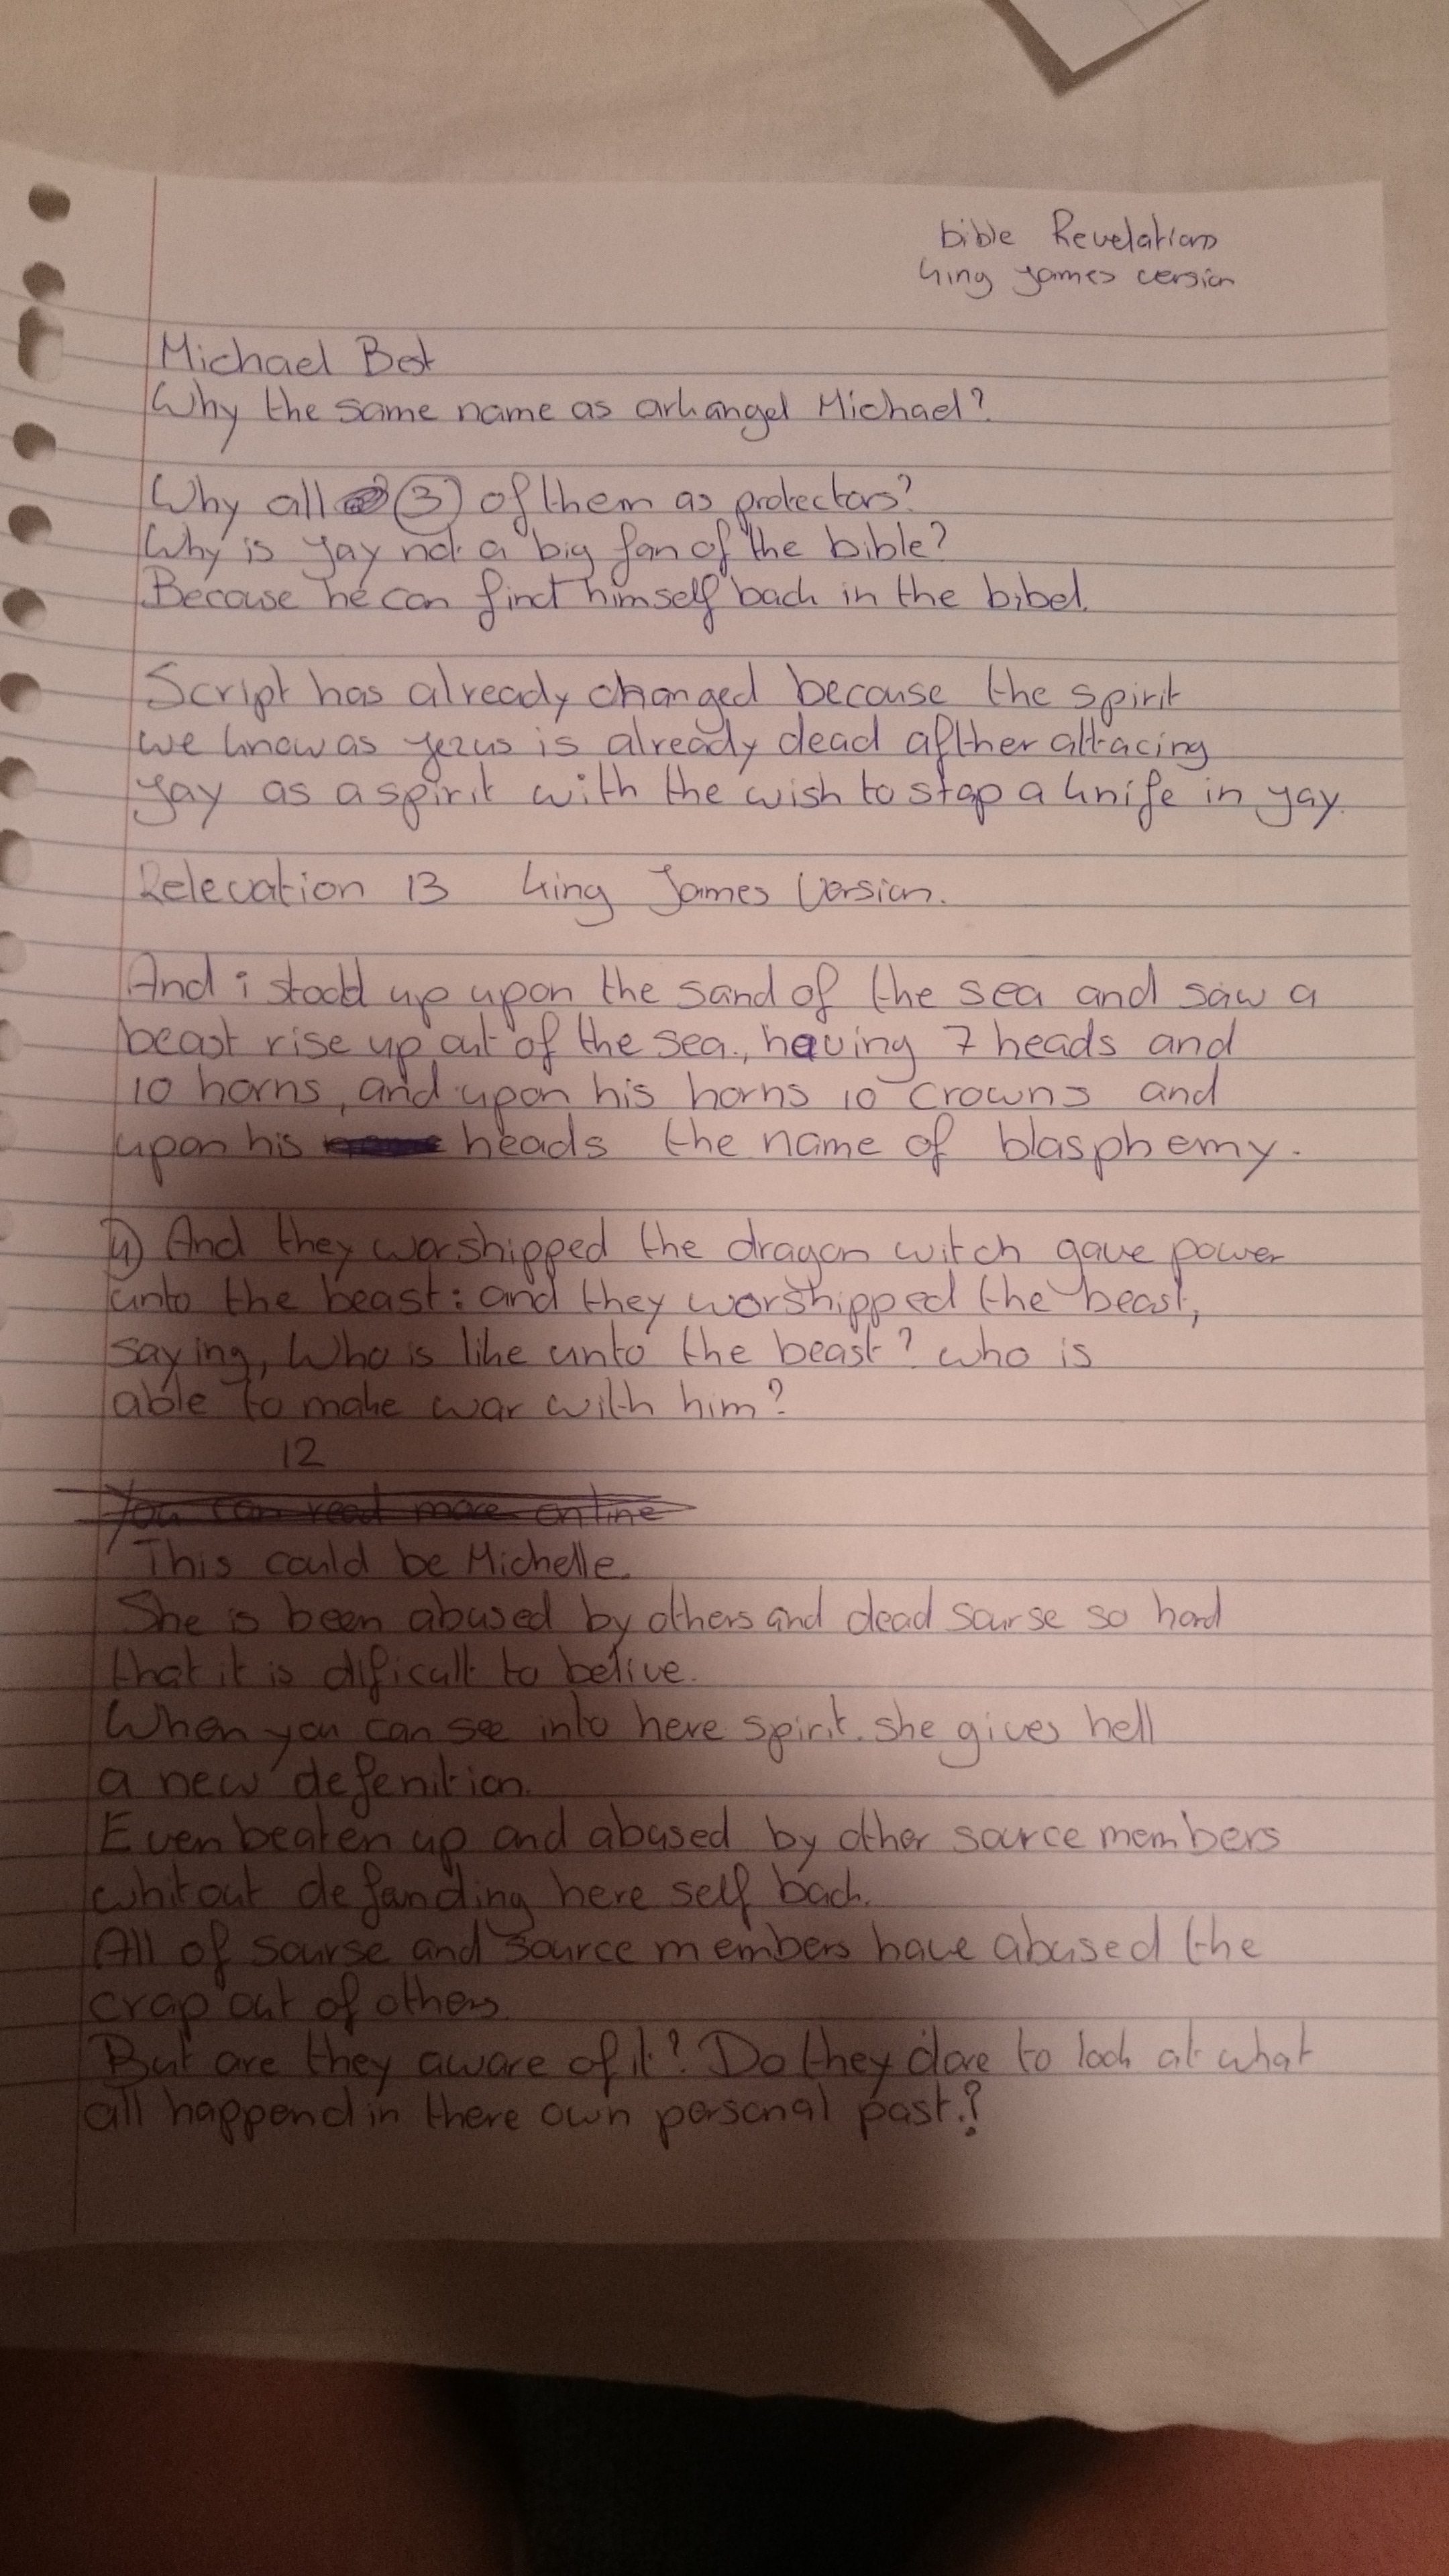 bible Revelations
King James version
Michael Best
Why the same name as arhangel Michael?
Why all (3) of them as protectors?
Why is Jay not a big fan of the bible?
Because he can find himself back in the bibel.
Script has already changed because the spirit
we know as Jezus is already dead afther attacing
Jay as a spirit with the wish to stop a knife in Jay.
Relevation 13 King James Version.
And i stood up upon the sand of the sea and saw a
beast rise up out of the sea., having 7 heads and
10 horns, and upon his horns 10 crowns and
upon his heads the name of blasphemy.
4) And they worshipped the dragon witch gave power
unto the beast: and they worshipped the beast,
saying, Who is like unto the beast? who is
able to make war with him?
12
You can read more online
This could be Michelle.
She is been abused by others and dead sourse so hard
that it is dificult to belive.
When you can see into here spirit. she gives hell
a new defenition.
Even beaten up and abused by other source members
whitout defanding here self back.
All of sourse and source members have abused the
crap out of others
But are they aware of it? Do they dare to look at what
all happend in there own personal past.?